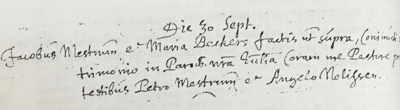 Die 30 Sept.
Jacobus Mestrum et Maria Beckers factis ut supra, coniuncti
trimonio in Paroch. nra Ecclia coram me Pastore p
testibus Petro Mestrum et Angelo Nelissen.